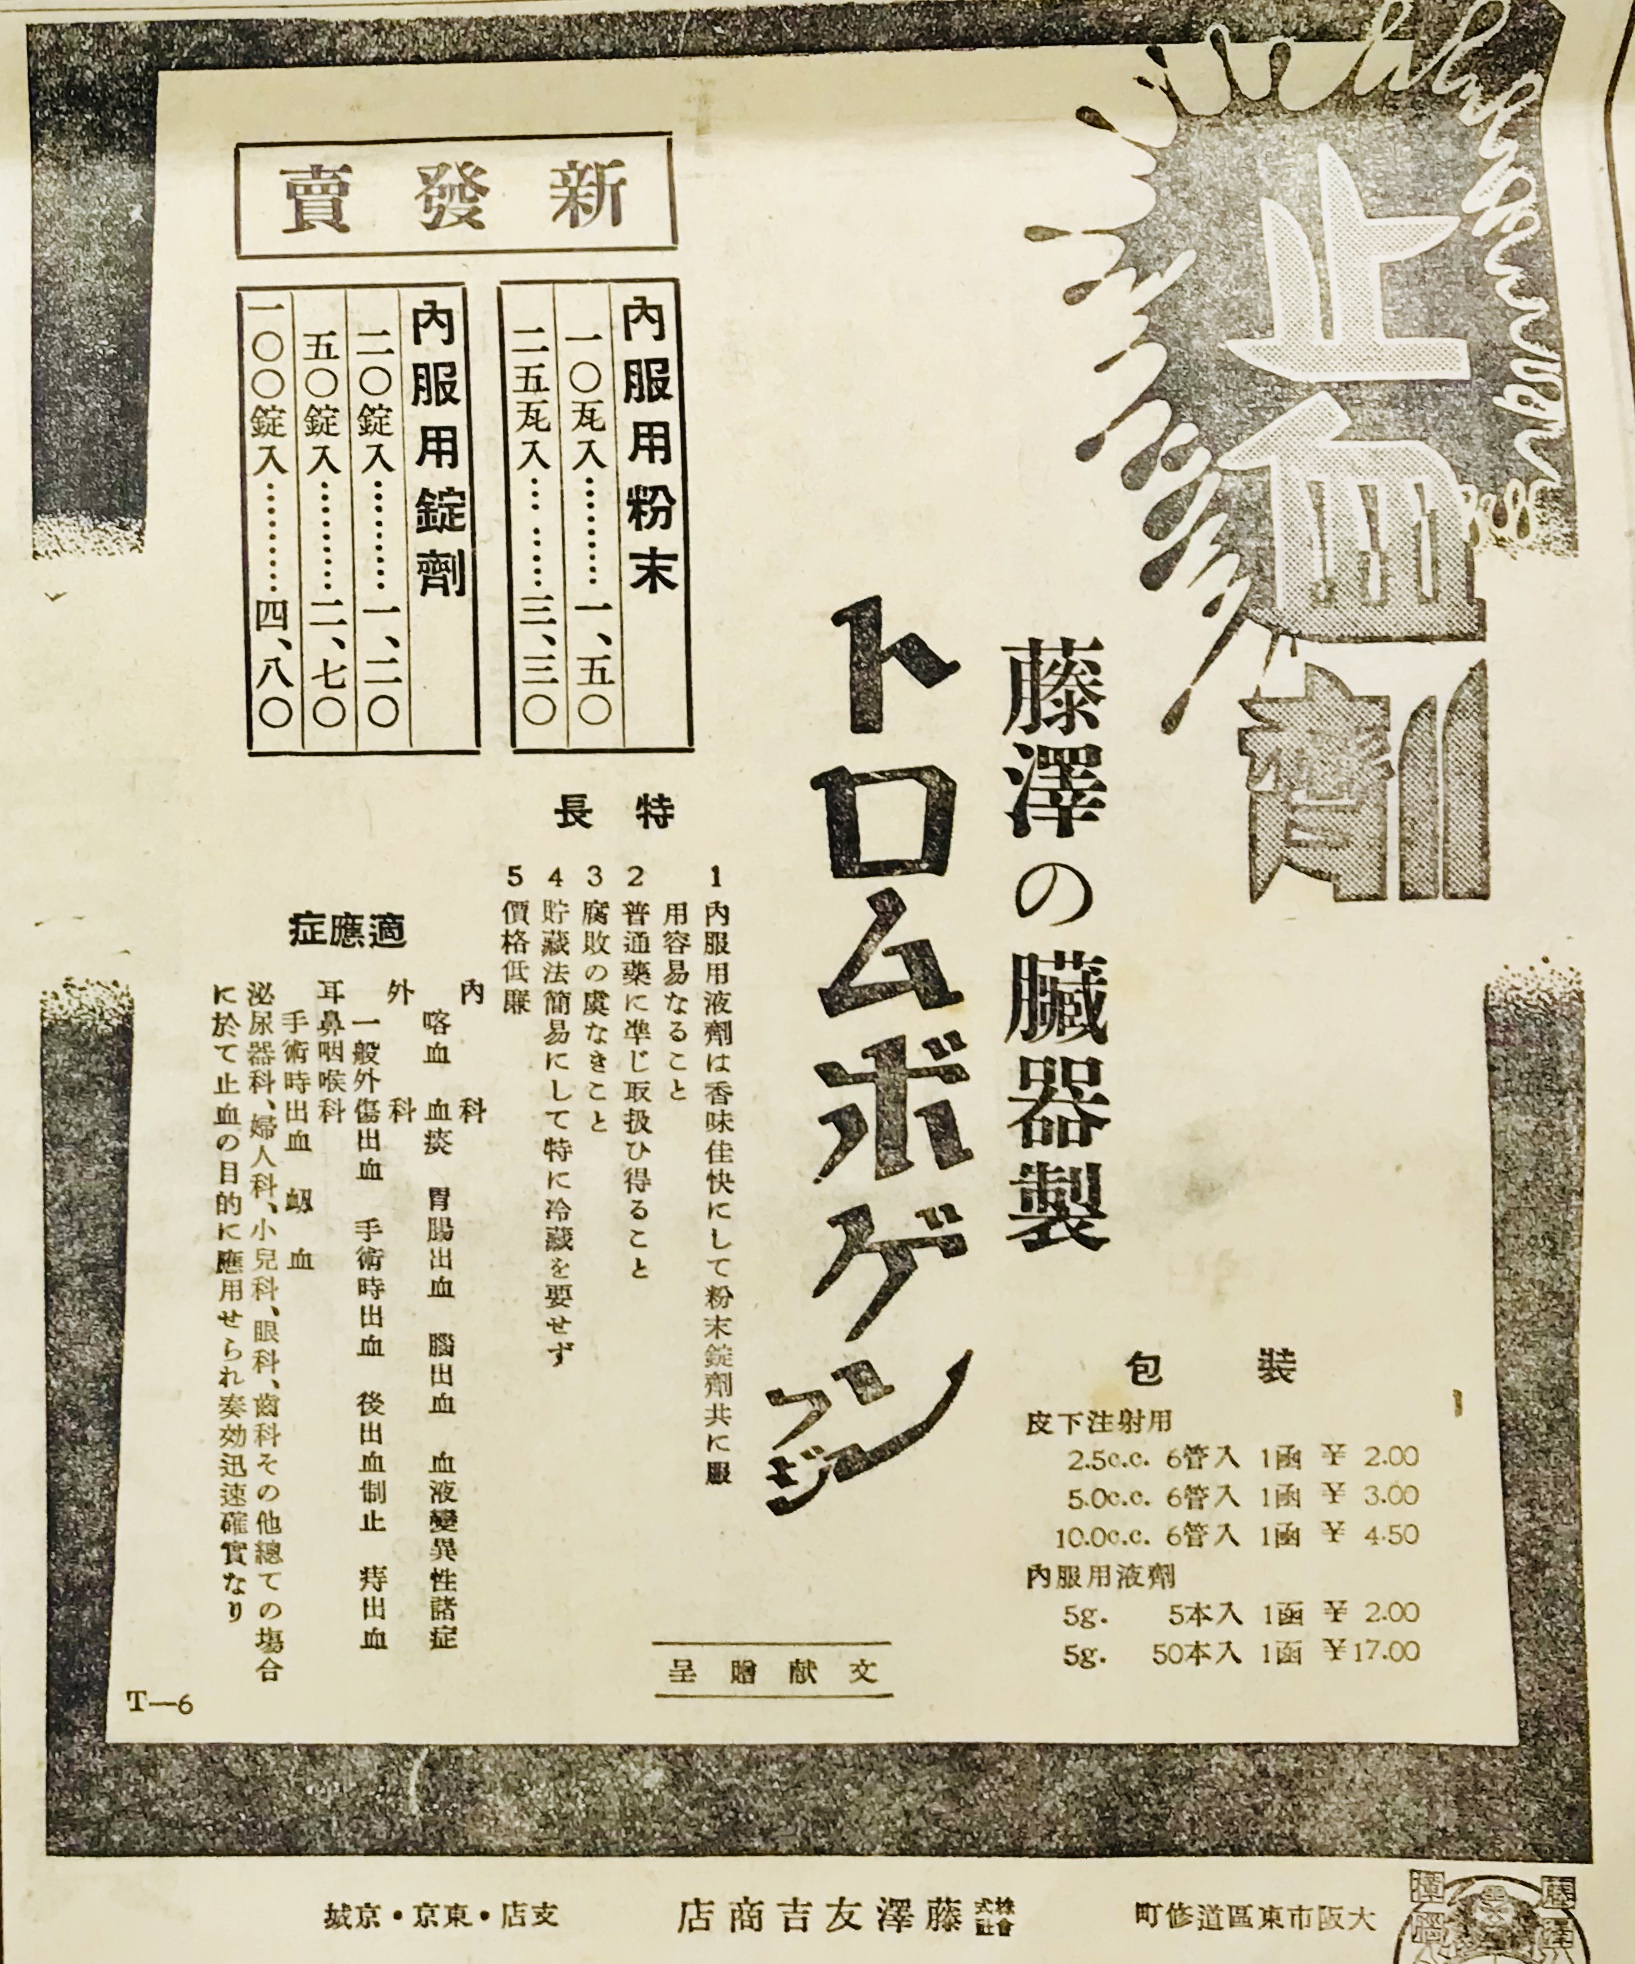 止血劑
藤澤の臟器製
トロムボゲン
フジ
包裝
皮下注射用
2.5c.c. 6管入 1凾 ¥ 2.00
5.0c.c. 6管入 1凾 ¥ 3.00
10.0c.c. 6管入 1凾 ¥ 4.50
內服用液劑
5g. 5本入 1凾 ¥ 2.00
5g. 50本入 1凾 ¥17.00
新發賣
內服用粉末
一〇瓦入………一、五〇
二五瓦入………三、三〇
內服用錠劑
二〇錠入………一、二〇
五〇錠入………二、七〇
一〇〇錠入………四、八〇
特長
1 內服用液劑は香味佳快にして粉末錠劑共に服
用容易なること
2 普通藥に準じ取扱ひ得ること
3 腐敗の虞なきこと
4 貯藏法簡易にして特に冷藏を要せず
5 價格低廉
適應症
內科
喀血 血痰 胃腸出血 腦出血 血液變異性諸症
外科
一般外傷出血 手術時出血 後出血制止 痔出血
耳鼻咽喉科
手術時出血 衂血
泌尿器科、婦人科、小兒科、眼科、齒科その他總ての場合
に於て止血の目的に應用せられ奏効迅速確實なり
文献贈呈
T—6
大阪市東區道修町
株式會社 藤澤友吉商店
支店・東京・京城